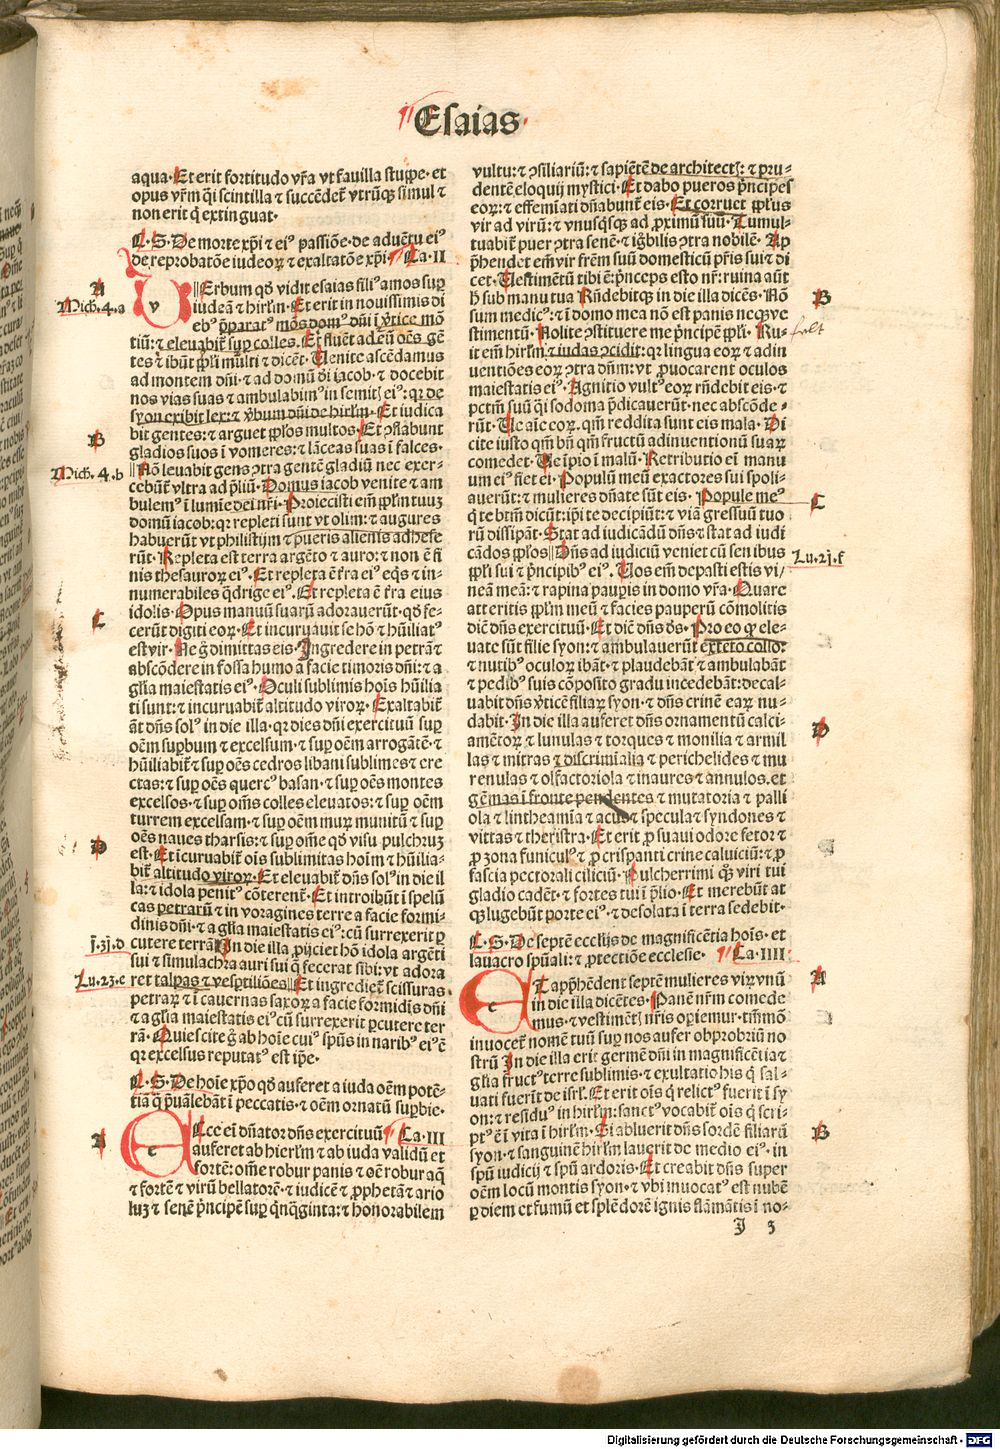 Esaias
aqua. Et erit fortitudo vr̃a vt fauilla stuppe. et
opus vr̃m q̃si scintilla ⁊ succẽdet̃ vtrũqꝫ simul ⁊
non erit q̃ extinguat.
L. S. De morte xp̃i ⁊ eiꝰ passiõe. de aduẽtu eiꝰ
de reprobatõe iudeoꝝ ⁊ exaltatõe xp̃i. Ca. II
A
Mich. 4. a
v
Erbum qđ vidit esaias filiꝰ amos suꝑ
iudeã ⁊ hirlm̃. Et erit in nouissimis di
ebꝰ p̃paratꝰ mõs domꝰ dñi ĩ v̾tice mõ
tiũ: ⁊ eleuabit̃ suꝑ colles. Et fluẽt ad eũ oẽs gẽ
tes ⁊ ibũt pp̃li multi ⁊ dicẽt. Uenite ascẽdamus
ad montem dñi. ⁊ ad domũ đi iacob. ⁊ docebit
nos vias suas ⁊ ambulabimꝰ in semit̃ eiꝰ: qꝛ de
syon exibit lex: ⁊ v̾bum dñi de hirlm̃. Et iudica
bit gentes: ⁊ arguet pp̃los multos. Et ꝯflabunt
B
gladios suos ĩ vomeres: ⁊ lãceas suas ĩ falces.
Mich. 4. b
Nõ leuabit gens ꝯtra gentẽ gladiũ nec exer-
cebũt̃ vltra ad p̃liũ. Domus iacob venite ⁊ am
bulemꝰ ĩ lumĩe dei nr̃i. Proiecisti em̃ pp̃lm tuuꝫ
domũ iacob: qꝛ repleti sunt vt olim: ⁊ augures
habuerũt vt philistijm ⁊ pueris alienis adhese
rũt. Repleta est terra argẽto ⁊ auro: ⁊ non ẽ fi
nis thesauroꝝ eiꝰ. Et repleta ẽ t̃ra eiꝰ eq̃s ⁊ in-
numerabiles q̃drige eiꝰ. Et repleta ẽ t̃ra eius
idolis. Opus manuũ suarũ adorauerũt. qđ fe-
C
cerũt digiti eoꝝ. Et incuruauit se hõ ⁊ hũiliatꝰ
est vir. Ne g̊ dimittas eis. Ingredere in petrã ⁊
abscõdere in fossa humo a facie timoris dñi: ⁊ a
gl̃ia maiestatis eiꝰ. Oculi sublimis hoĩs hũilia
ti sunt: ⁊ incuruabit̃ altitudo viroꝝ. Exaltabit̃
aũt dñs solꝰ in die illa. qꝛ dies dñi exercituũ suꝑ
oẽm suꝑbum ⁊ excelsum. ⁊ suꝑ oẽm arrogãtẽ. ⁊
hũiliabit̃ ⁊ suꝑ oẽs cedros libani sublimes ⁊ ere
ctas: ⁊ suꝑ oẽs quercꝰ basan. ⁊ suꝑ oẽs montes
excelsos. ⁊ suꝑ om̃s colles eleuatos: ⁊ suꝑ oẽm
turrem excelsam. ⁊ suꝑ oẽm muꝝ munitũ ⁊ suꝑ
oẽs naues tharsis: ⁊ suꝑ om̃e qđ visu pulchruꝫ
D
est. Et ĩcuruabit̃ oĩs sublimitas hoĩm ⁊ hũilia-
bit̃ altitudo viroꝝ. Et eleuabit̃ dñs solꝰ in die il
la: ⁊ idola penitꝰ cõterent̃. Et introibũt ĩ spelũ
cas petrarũ ⁊ in voragines terre a facie formi-
dinis dñi. ⁊ a gl̃ia maiestatis eiꝰ: cũ surrexerit ꝑ
j. 3j. d
cutere terrã. In die illa ꝓijciet hõ idola argẽti
sui ⁊ simulachra auri sui q̃ fecerat sibi: vt adora
Lu. 23. e
ret talpas ⁊ vesꝑtiliões. Et ingrediet̃ scissuras
petraꝝ ⁊ ĩ cauernas saxoꝝ a facie formidĩs dñi
⁊ a gl̃ia maiestatis eiꝰ cũ surrexerit ꝑcutere ter
rã. Quiescite g̊ ab hoĩe cuiꝰ sp̃us in naribꝰ eiꝰ ẽ
qꝛ excelsus reputatꝰ est ip̃e.
L. S. De hoĩe xp̃o qđ auferet a iuda oẽm potẽ-
tiã q̃ p̃ualẽbãt ĩ peccatis. ⁊ oẽm ornatũ suꝑbie.
A
e
Ecce eĩ dñator dñs exercituũ Ca. III
auferet ab hierlm̃ ⁊ ab iuda validũ et
fortẽ: om̃e robur panis ⁊ oẽ robur aq̃
⁊ fortẽ ⁊ virũ bellatorẽ. ⁊ iudicẽ ⁊ ꝓphetã ⁊ ario
luꝫ ⁊ senẽ p̃ncipẽ suꝑ q̃nq̃ginta: ⁊ honorabilem
vultu: ⁊ ꝯsiliariũ: ⁊ sapiẽtẽ de architect̃: ⁊ pru-
dentẽ eloquij mystici. Et dabo pueros p̃ncipes
eoꝝ: ⁊ effemĩati dñabunt̃ eis. Et corruet pp̃lus
vir ad virũ: ⁊ vnusq̃sqꝫ ad ꝓximũ suũ. Tumul-
tuabit̃ puer ꝯtra senẽ. ⁊ ig̃bilis ꝯtra nobilẽ. Ap
p̃hendet em̃ vir frẽm suũ domesticũ pr̃is sui ⁊ di
cet. Uestimẽtũ tibi ẽ: p̃nceps esto nr̃: ruina aũt
B
h̾ sub manu tua. Rñdebitqꝫ in die illa dicẽs. Nõ
sum medicꝰ: ⁊ ĩ domo mea nõ est panis neqꝫ ve
stimentũ. Nolite ꝯstituere me p̃ncipẽ pp̃li. Ru-
it em̃ hirlm̃ ⁊ iudas ꝯcidit: qꝛ lingua eoꝝ ⁊ adin
uentiões eoꝝ ꝯtra dñm: vt ꝓuocarent oculos
maiestatis eiꝰ. Agnitio vultꝰ eoꝝ rñdebit eis. ⁊
pctm̃ suũ q̃si sodoma p̃dicauerũt. nec abscõde-
rũt. Ue aĩe eoꝝ. qm̃ reddita sunt eis mala. Di
cite iusto qm̃ bñ. qm̃ fructũ adinuentionũ suaꝝ
comedet. Ue ĩpio ĩ malũ. Retributio eĩ manu
um eiꝰ fiet ei. Populũ meũ exactores sui spoli-
auerũt: ⁊ mulieres dñate sũt eis. Popule meꝰ
C
q̃ te btm̃ dicũt: ip̃i te decipiũt: ⁊ viã gressuũ tuo
rũ dissipãt. Stat ad iudicãdũ dñs ⁊ stat ad iudi
cãdos pp̃los. Dñs ad iudiciũ veniet cũ senibus
Lu. 2j. f
pp̃li sui ⁊ p̃ncipibꝰ eiꝰ. Uos em̃ depasti estis vi-
neã meã: ⁊ rapina pauꝑis in domo vr̃a. Quare
atteritis pp̃lm meũ ⁊ facies pauperũ cõmolitis
dic̃ dñs exercituũ. Et dic̃ dñs đs. Pro eo ꝙ ele-
uate sũt filie syon: ⁊ ambulauerũt extẽto collo:
⁊ nutibꝰ oculoꝝ ibãt. ⁊ plaudebãt ⁊ ambulabãt
⁊ pedibꝰ suis cõposito gradu incedebãt: decal-
uabit dñs v̾ticẽ filiaꝝ syon. ⁊ dñs crinẽ eaꝝ nu-
D
dabit. In die illa auferet dñs ornamentũ calci-
amẽtoꝝ ⁊ lunulas ⁊ torques ⁊ monilia ⁊ armil
las ⁊ mitras ⁊ discrimĩalia ⁊ perichelides ⁊ mu
renulas ⁊ olfactoriola ⁊ inaures ⁊ annulos. et
gẽmas ĩ fronte pendentes ⁊ mutatoria ⁊ palli
ola ⁊ lintheamia ⁊ acus ⁊ specula ⁊ syndones ⁊
vittas ⁊ theristra. Et erit ꝓ suaui odore fetor ⁊
ꝓ zona funiculꝰ ⁊ ꝓ crispanti crine caluiciũ: ⁊ ꝓ
fascia pectorali ciliciũ. Pulcherrimi qꝫ viri tui
gladio cadẽt. ⁊ fortes tui ĩ p̃lio. Et merebũt at
qꝫ lugebũt porte eiꝰ. ⁊ desolata ĩ terra sedebit.
L. S. De septẽ ecclĩjs de magnificẽtia hoĩs. et
lauacro sp̃uali: ⁊ ꝓtectiõe ecclesie. Ca. IIII
A
e
Et app̃hẽdent septẽ mulieres viꝝ vnũ
in die illa dicẽtes. Panẽ nr̃m comede
mus. ⁊ vestimẽt̃ nr̃is oꝑiemur. tm̃mõ
inuocet̃ nomẽ tuũ suꝑ nos aufer obprobriũ no
strũ. In die illa erit germẽ dñi in magnificẽtia ⁊
gl̃ia fructꝰ terre sublimis. ⁊ exultatio his q̃ sal-
uati fuerĩt de isrl̃. Et erit oĩs q̃ relictꝰ fuerit ĩ sy
on: ⁊ residuꝰ in hirlm̃: sanctꝰ vocabit̃ oĩs q̃ scri-
B
ptꝰ ẽ ĩ vita ĩ hirlm̃. Si abluerit dñs sordẽ filiarũ
syon. ⁊ sanguinẽ hirlm̃ lauerit de medio eiꝰ. in
sp̃u iudicij ⁊ sp̃u ardoris. Et creabit dñs super
oẽm locũ montis syon. ⁊ vbi inuocatꝰ est nubẽ
ꝑ diem et fumũ et splẽdorẽ ignis flãmãtis ĩ no-
J 3
Digitalisierung gefördert durch die Deutsche Forschungsgemeinschaft - DFG